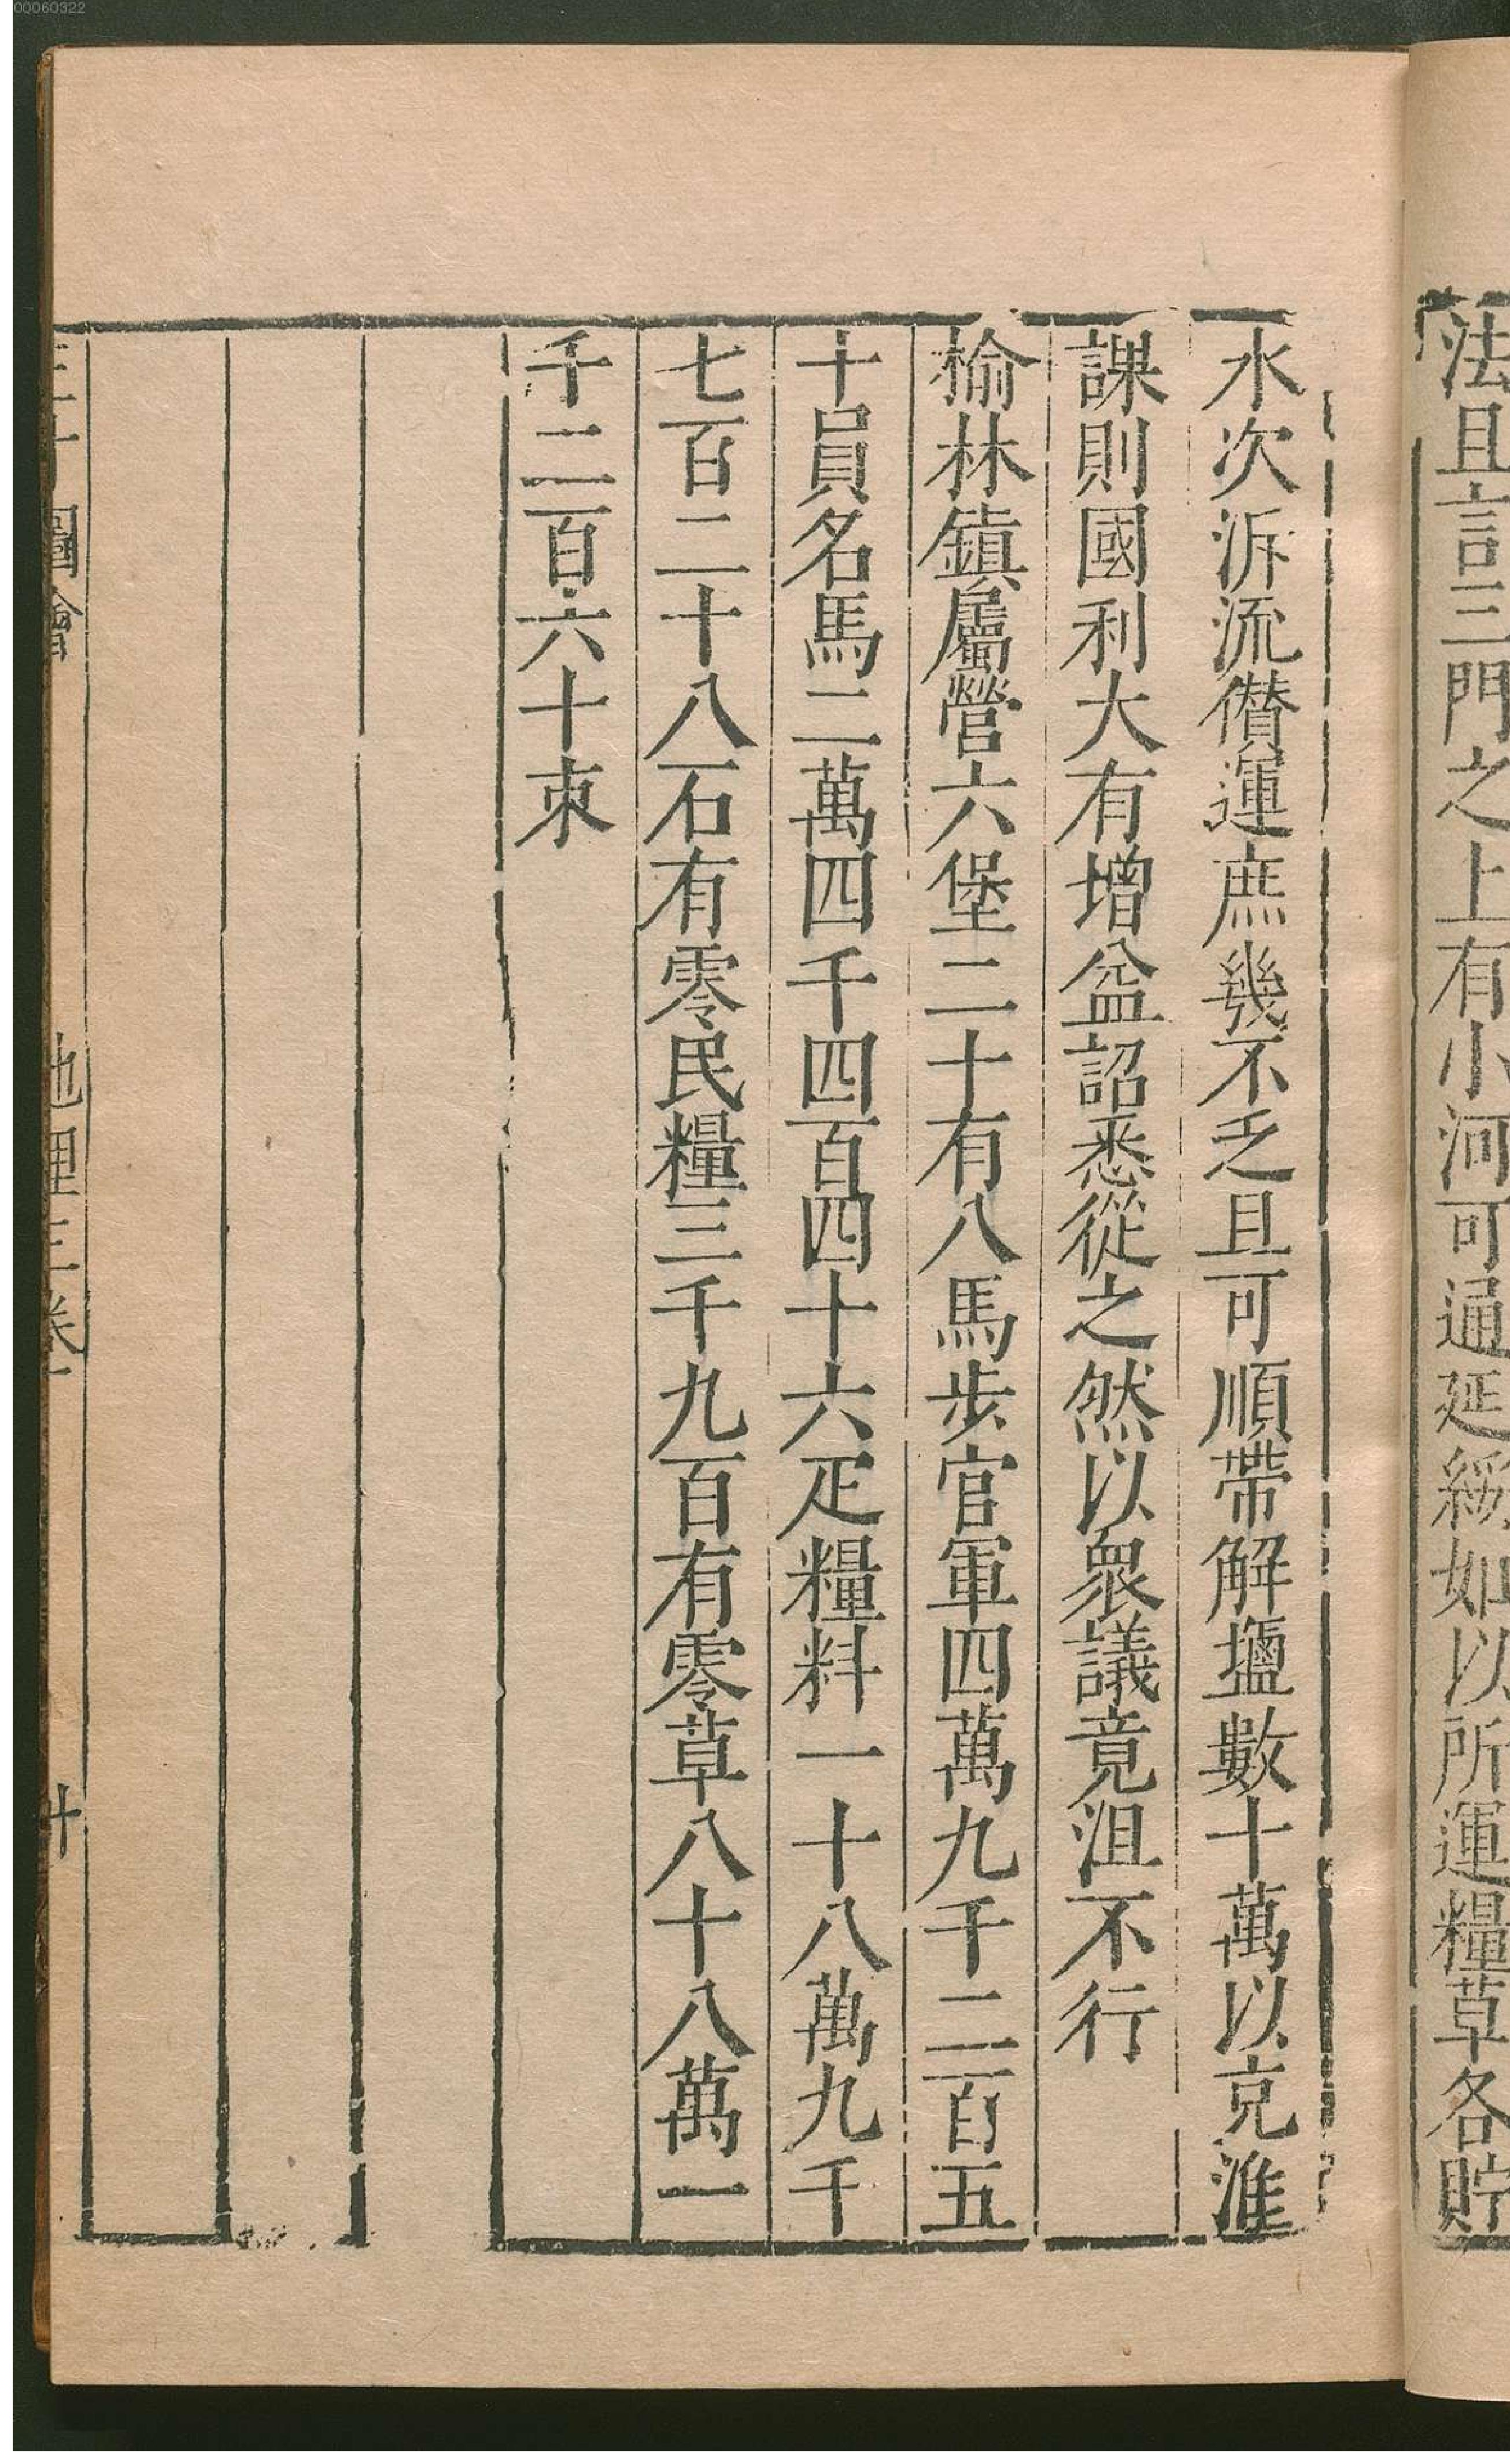 00060322
法且言三門之上有小河可通延綏如以所運糧草各貯
水次泝流僣運庶幾不乏且可順帶解塩數十萬以充淮
課則國利大有增益詔悉從之然以衆議竟沮不行
榆林鎮屬營六堡二十有八馬步官軍四萬九千二百五
十員名馬二萬四千四百四十六疋糧料一十八萬九千
七百二十八石有零民糧三千九百有零草八十八萬一
千二百六十束
三才圖會
地理三卷
十